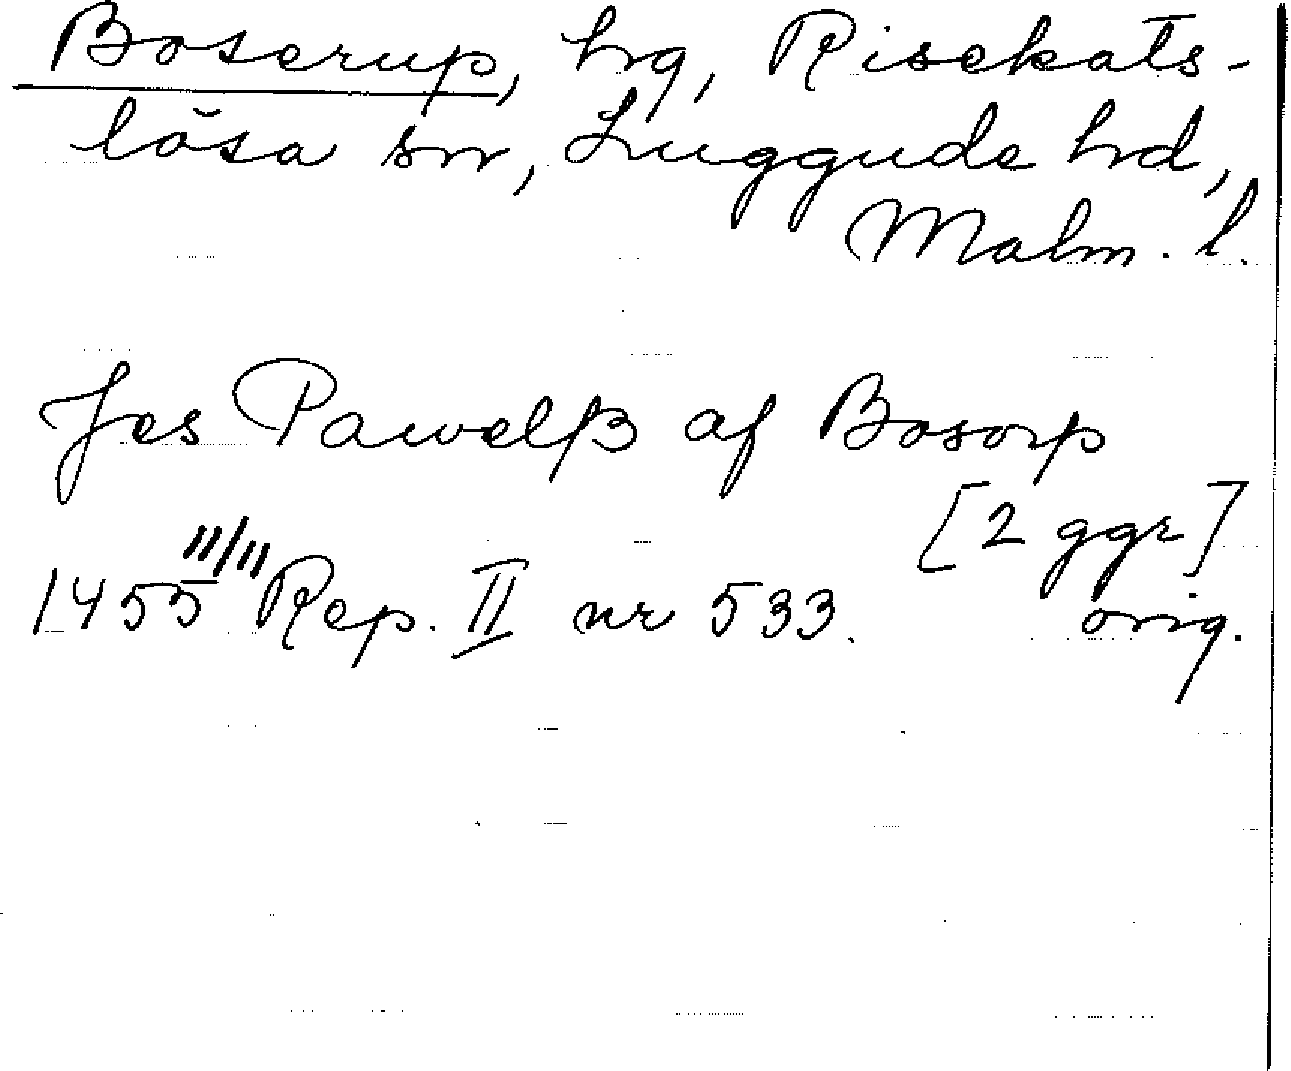 Boserup, hg, Risekats-
lösa sn, Luggude hd,
Malm. l.
Jes Pawelß af Bosorp
[2 ggr]
1455 11/11 Rep. II nr 533. orig.